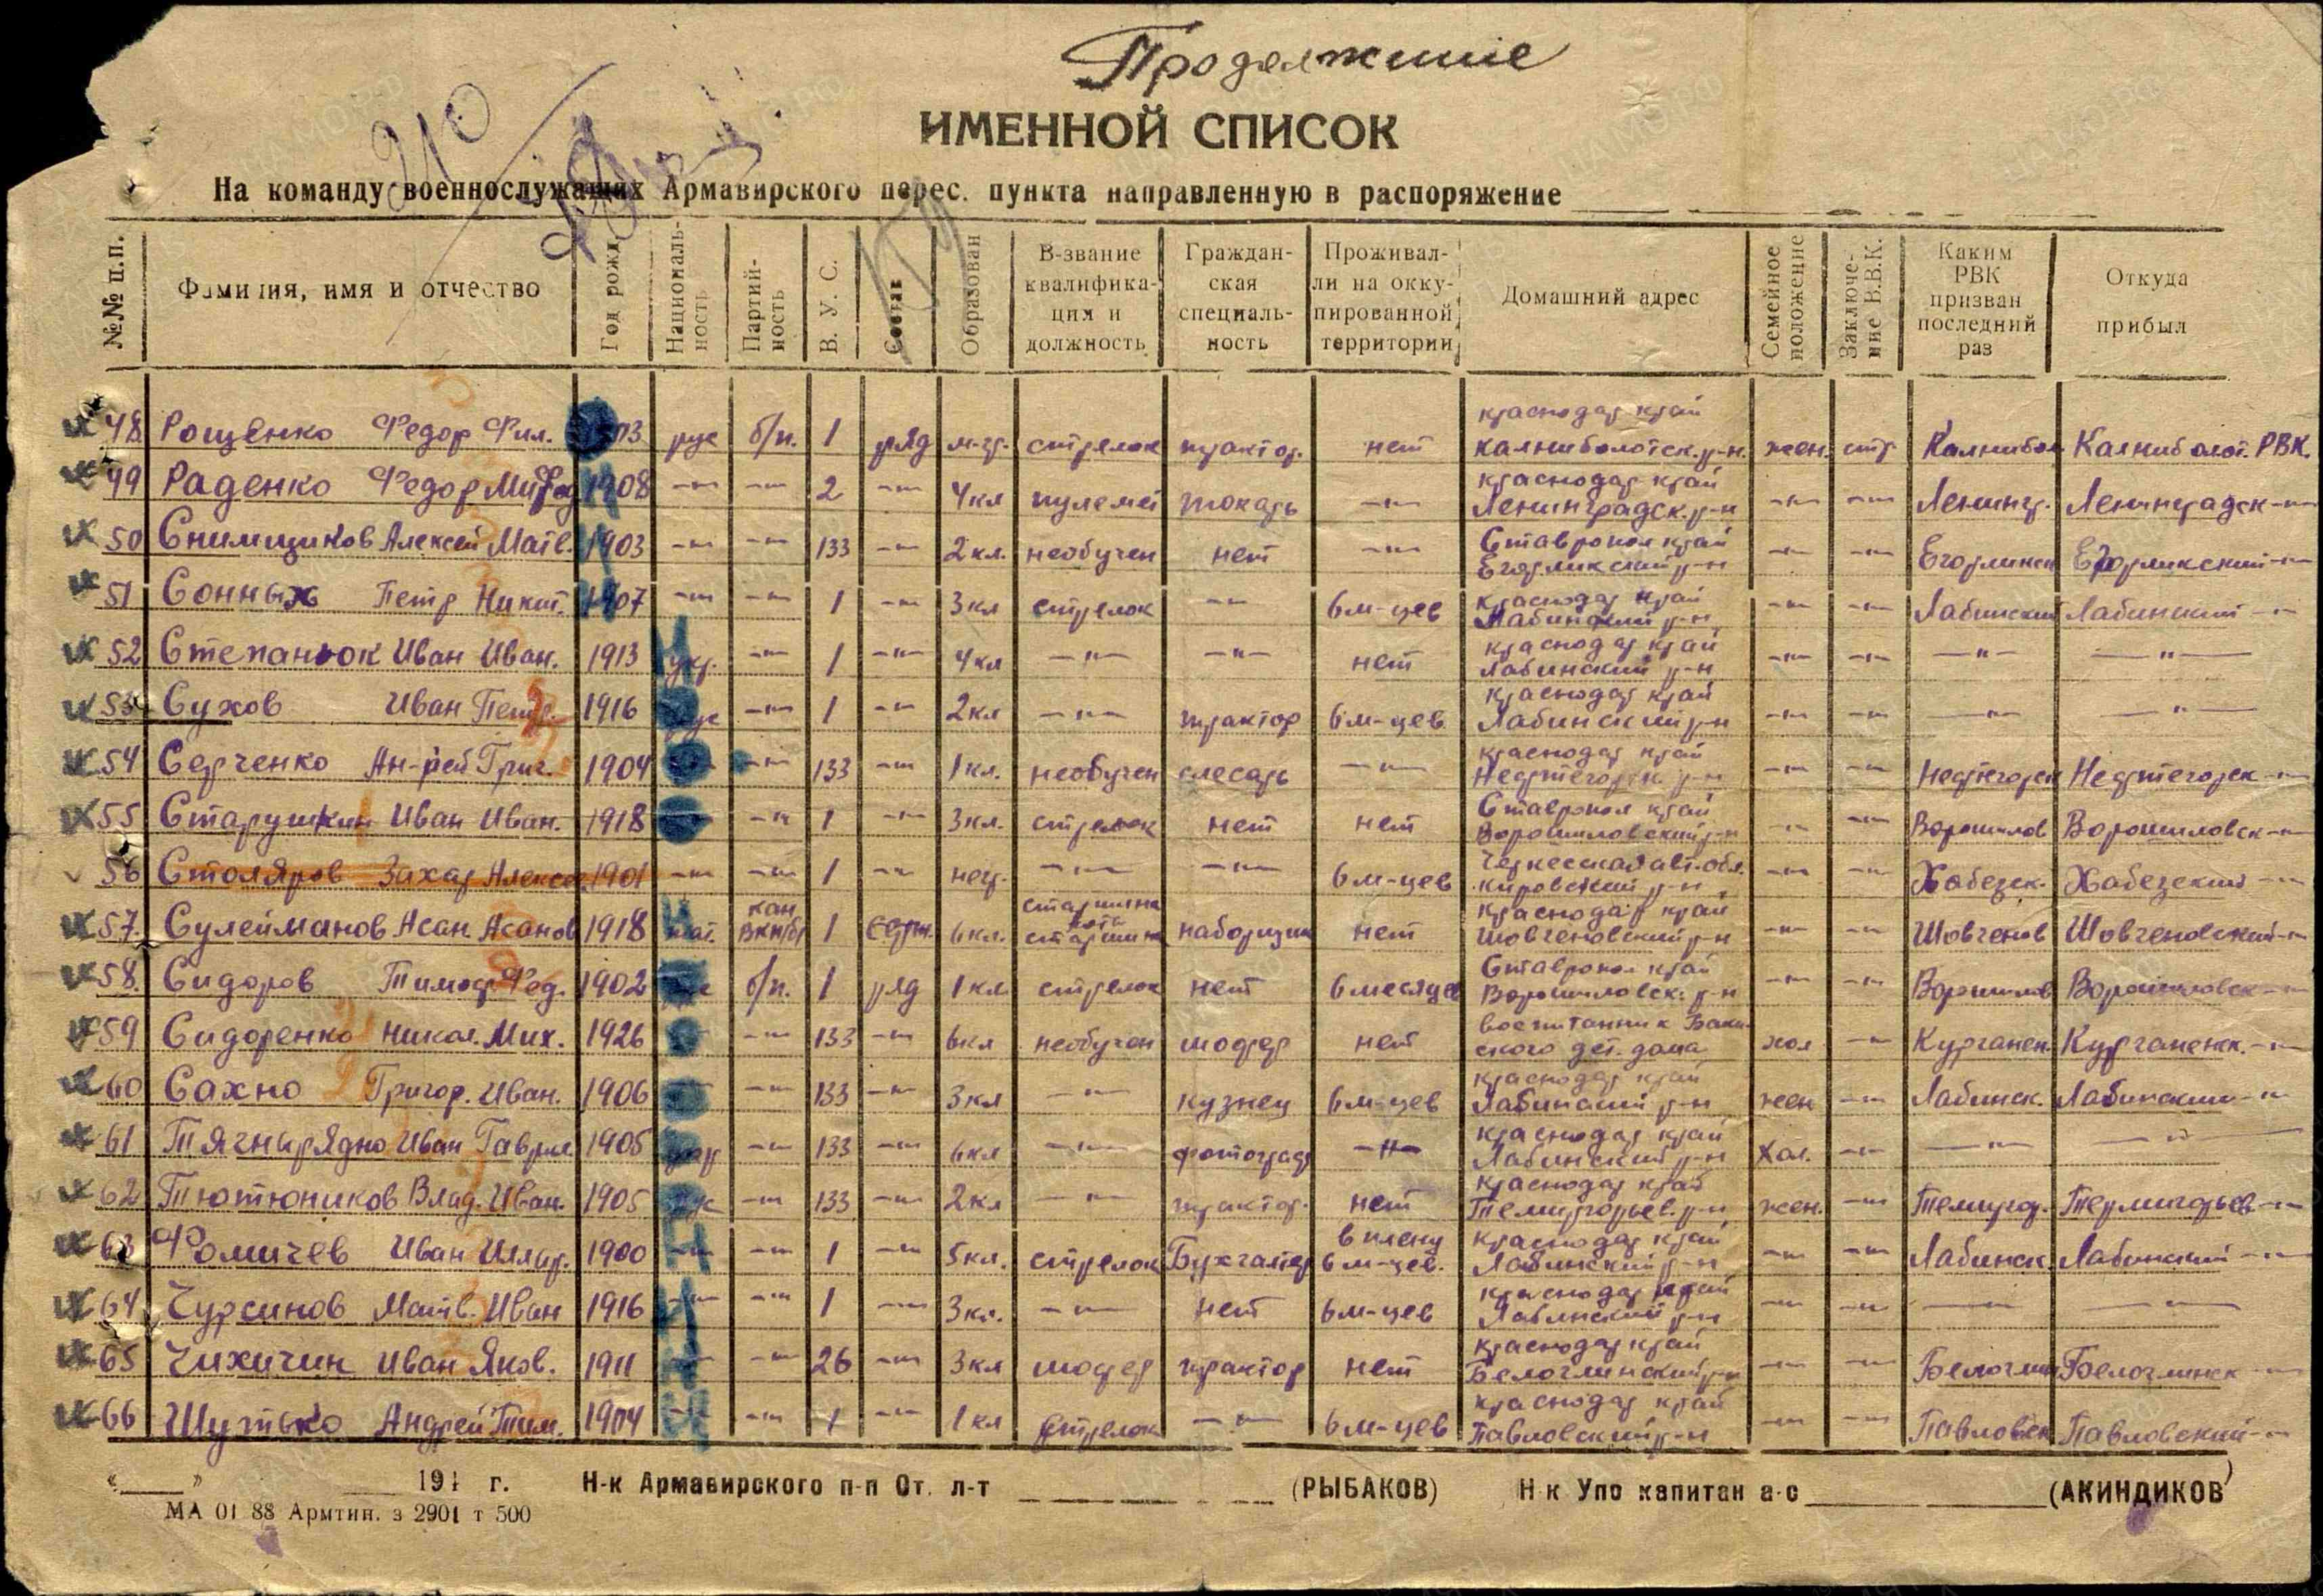 Продолжение
ИМЕННОЙ СПИСОК
На команду военнослужащих Армавирского перес. пункта направленную в распоряжение
№№ п.п. Фамилия, имя и отчество Год рожд. Националь-ность Партий-ность В. У. С. Состав Образован В-звание квалифика-ция и должность Граждан-ская специаль-ность Проживал-ли на окку-пированной территории Домашний адрес Семейное положение Заключе-ние В.В.К. Каким РВК призван последний раз Откуда прибыл
48 Рощенко Федор Фил. рус б/п. 1 ряд м-гр. стрелок трактор. нет краснодар край Калниболотск. р-н. жен. стр Калнибол Калниболот. РВК.
49 Раденко Федор 1908 -"- -"- 2 -"- 4кл пулемет токарь -"- краснодар край Ленинградск. р-н -"- -"- Ленингр. Ленинградск -"-
50 Снимщиков Алексей Матв. 1903 -"- -"- 133 -"- 2кл. необучен нет -"- Ставропол край Егорликский р-н -"- -"- Егорликск Егорликский -"-
51 Сонных Петр Никит. 1907 -"- -"- 1 -"- 3кл стрелок -"- 6м-цев Краснодар край Лабинский р-н -"- -"- Лабинский Лабинский -"-
52 Степанюк Иван Иван. 1913 укр. -"- 1 -"- 4кл -"- -"- нет краснодар край Лабинский р-н -"- -"- -"- -"-
53 Сухов Иван Петр. 1916 рус -"- 1 -"- 2кл -"- трактор 6м-цев краснодар край Лабинский р-н -"- -"- -"- -"-
54 Серченко Ан-рей Григ. 1904 -"- 133 -"- 1кл. необучен слесарь -"- краснодар край Нефтегорск. р-н -"- -"- Нефтегорск Нефтегорск -"-
55 Старушкин Иван Иван. 1918 -"- 1 -"- 3кл. стрелок нет нет Ставропол край Ворошиловский р-н -"- -"- Ворошилов Ворошиловск -"-
56 Столяров Захар Алексе 1901 -"- -"- 1 -"- негр. -"- -"- 6м-цев Черкесская авт. обл. Кировский р-н -"- -"- Хабезск. Хабезский -"-
57. Сулейманов Асан Асанов 1918 тат. кан ВКП/б/ 1 серж. 6кл. старшина роты старшина наборщик нет краснодар край Шовгеновский р-н -"- -"- Шовгенов Шовгеновский -"-
58. Сидоров Тимоф Фед. 1902 б/п. 1 ряд 1кл стрелок нет 6 месяцев Ставропол край Ворошиловск. р-н -"- -"- Ворошилов Ворошиловск -"-
59 Сидоренко Никол. Мих. 1926 -"- 133 -"- 6кл необучен шофер нет воспитанник Бакинского дет. дома хол -"- Курганен. Курганенск. -"-
60 Сахно Григор. Иван. 1906 -"- 133 -"- 3кл -"- кузнец 6м-цев краснодар край Лабинский р-н жен -"- Лабинск. Лабинский -"-
61 Тягнирядно Иван Гаврил 1905 укр -"- 133 -"- 6кл -"- фотограф -"- краснодар край Лабинский р-н Хол. -"- -"- -"-
62 Тютюников Влад. Иван. 1905 рус -"- 133 -"- 2кл -"- трактор. нет краснодар край Темиргоевск. р-н жен. -"- Темиргор. Термигорьев. -"-
63 Фомичев Иван Илляр. 1900 -"- -"- 1 -"- 5кл. стрелок Бухгалтер в плену 6м-цев. краснодар край Лабинский р-н -"- -"- Лабинск. Лабинский -"-
64 Чурсинов Матв. Иван 1916 -"- -"- 1 -"- 3кл. -"- нет 6м-цев краснодар край Лабинский р-н -"- -"- -"- -"-
65 Чихичин Иван Яков. 1911 -"- -"- 26 -"- 3кл шофер трактор нет краснодар край Белоглинский р-н -"- -"- Белоглин Белоглинск -"-
66 Шутько Андрей Тим. 1904 -"- -"- 1 -"- 1кл стрелок -"- 6м-цев краснодар край Павловский р-н -"- -"- Павловск Павловский -"-
«____» ____ 194 г. Н-к Армавирского п-п От. л-т ____ (РЫБАКОВ) Н-к Упо капитан а-с ____ (АКИНДИКОВ)
МА 01 88 Армтип. з 2901 т 500